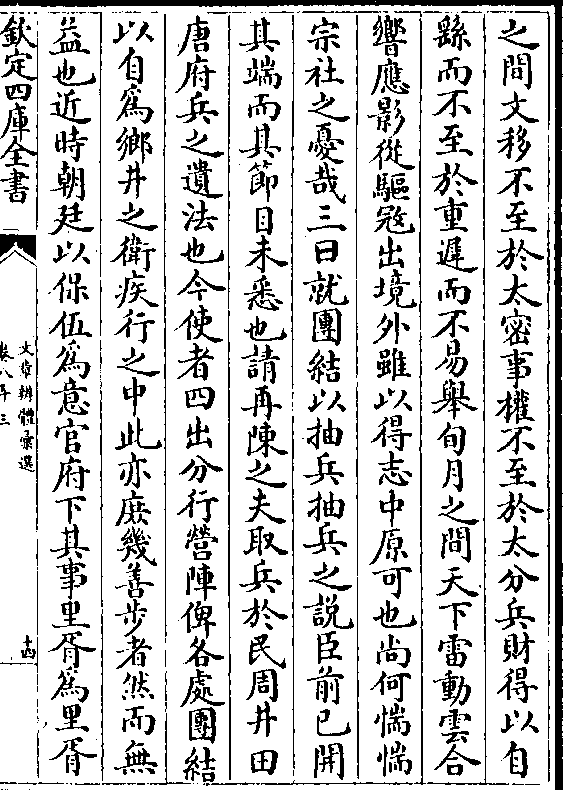 之間文移不至於太密事權不至於太分兵財得以自
繇而不至於重遲而不易舉旬月之間天下雷動雲合
響應影從驅㓂出境外雖以得志中原可也尚何惴惴
宗社之憂哉三曰就團結以抽兵抽兵之説臣前已開
其端而其節目未悉也請再陳之夫取兵於民周井田
唐府兵之遺法也今使者四出分行營陣俾各處團結
以自為鄉井之衛疾行之中此亦庶幾善步者然而無
益也近時朝廷以保伍為意官府下其事里胥為里胥
欽定四庫全書
文章辨體彙選
卷八十三
十四